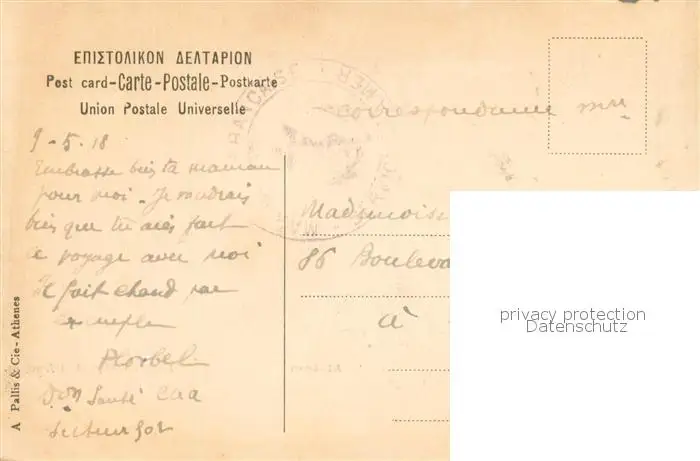 ΕΠΙΣΤΟΛΙΚΟΝ ΔΕΛΤΑΡΙΟΝ
Post card-Carte-Postale-Postkarte
Union Postale Universelle
Correspondance
9-5.18
Embrasse bien ta maman
pour moi. Je voudrais
bien que tu aies fait
ce voyage avec moi
Il fait chaud par
exemple
Santé
Secteur 502
Mademoise
86 Bouleva
à
A Pallis & Cie - Athenes
privacy protection
Datenschutz